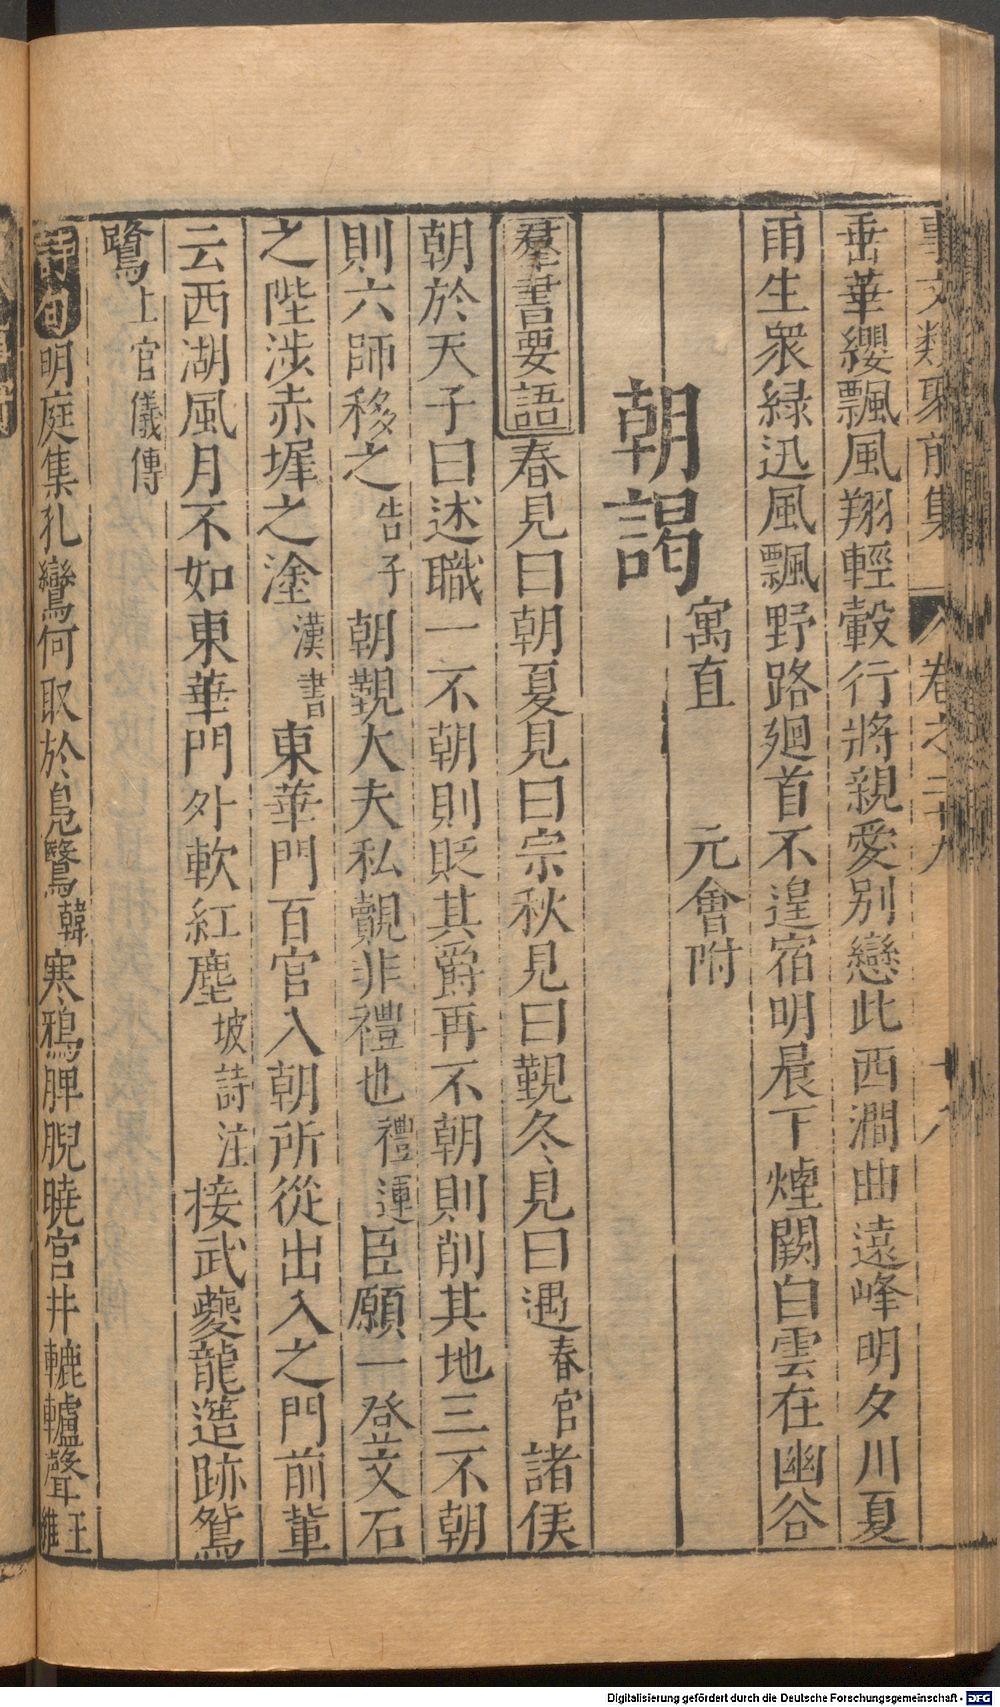 事文類聚前集 卷之二十九 十八
垂華纓飄風翔輕轂行將親愛別戀此西澗曲遠峰明夕川夏
雨生衆緑迅風飄野路廻首不遑宿明晨下煙閣白雲在幽谷
寓直 元會附
朝謁
羣書要語春見曰朝夏見曰宗秋見曰覲冬見曰遇春官諸侯
朝於天子曰述職一不朝則貶其爵再不朝則削其地三不朝
則六師移之告子朝覲大夫私覿非禮也禮運臣願一登文石
之陛涉赤墀之塗漢書東華門百官入朝所從出入之門前軰
云西湖風月不如東華門外軟紅塵坡詩注接武夔龍簉跡鴛
鷺上官儀傳
詩句明庭集孔鸞何取於鳬鷖韓寒鴉睥睨曉宮井轆轤聲王維
Digitalisierung gefördert durch die Deutsche Forschungsgemeinschaft - DFG